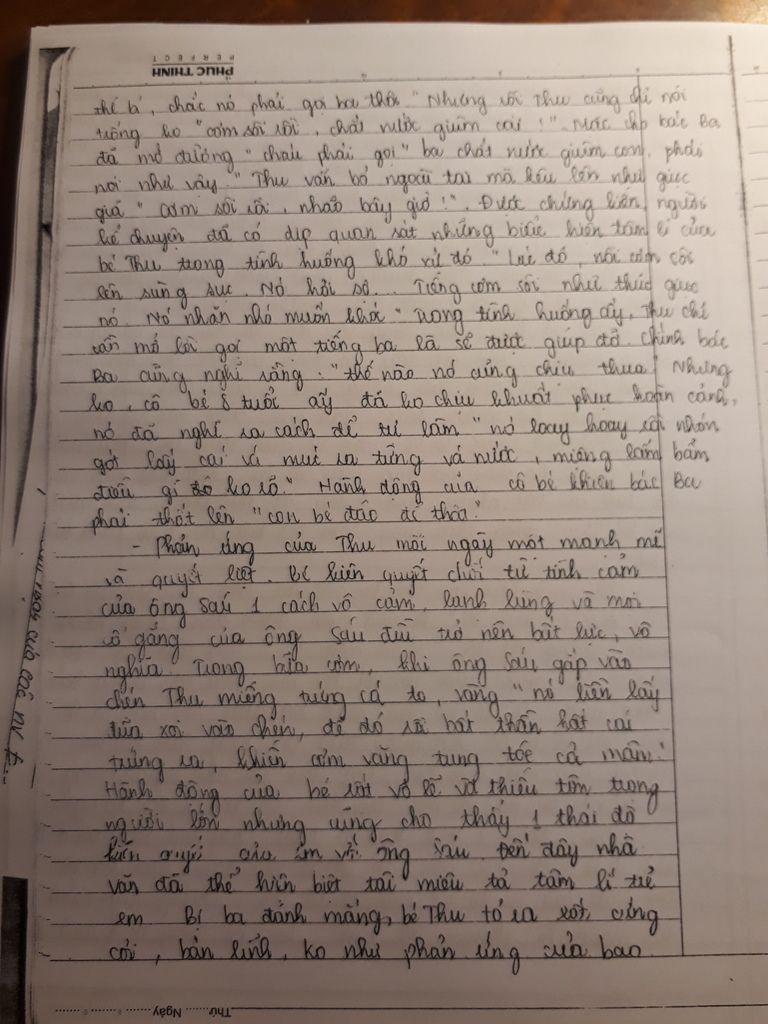 PHỤC THỊNH
PERFECT
thế bí, chắc nó phải gọi ba thôi. "Nhưng rồi Thu cũng chỉ nói
trống ko "cơm sôi rồi, chắt nước giùm cái!". Nước chợ bác Ba
đã mở đường "cháu phải gọi "ba chắt nước giùm con", phải
nói như vậy." Thu vẫn bỏ ngoài tai mà kêu lên như giục
giã "cơm sôi rồi, nhão bây giờ!". Được chứng kiến, người
kể chuyện đã có dịp quan sát những biểu hiện tâm lí của
bé Thu trong tình huống khó xử đó. "Lúc đó, nồi cơm sôi
lên sùng sục. Nó hơi sợ... Tiếng cơm sôi như thúc giục
nó. Nó nhăn nhó muốn khóc" Trong tình huống ấy, Thu chỉ
cần mở lời gọi một tiếng ba là sẽ được giúp đỡ. Chính bác
Ba cũng nghĩ rằng: "thế nào nó cũng chịu thua" Nhưng
ko, cô bé 8 tuổi ấy đã ko chịu khuất phục hoàn cảnh,
nó đã nghĩ ra cách để tự làm "nó loay hoay rồi nhón
gót lấy cái vá múc ra từng vá nước, miệng lẩm bẩm
điều gì đó ko rõ." Hành động của cô bé khiến bác Ba
phải thốt lên "con bé đáo để thật."
- Phản ứng của Thu mỗi ngày một mạnh mẽ
và quyết liệt. Bé kiên quyết chối từ tình cảm
của ông Sáu 1 cách vô cảm, lạnh lùng và mọi
cố gắng của ông Sáu đều trở nên bất lực, vô
nghĩa. Trong bữa cơm, khi ông Sáu gắp vào
chén Thu miếng trứng cá to, vàng "nó liền lấy
đũa xoi vào chén, để đó rồi bất thần hất cái
trứng ra, khiến cơm văng tung tóe cả mâm."
Hành động của bé rất vô lễ và thiếu tôn trọng
người lớn nhưng cũng cho thấy 1 thái độ
kiên quyết của em với ông Sáu. Đến đây nhà
văn đã thể hiện biệt tài miêu tả tâm lí trẻ
em. Bị ba đánh mắng, bé Thu tỏ ra rất cứng
cỏi, bản lĩnh, ko như phản ứng của bao
của các NV
Thứ Ngày